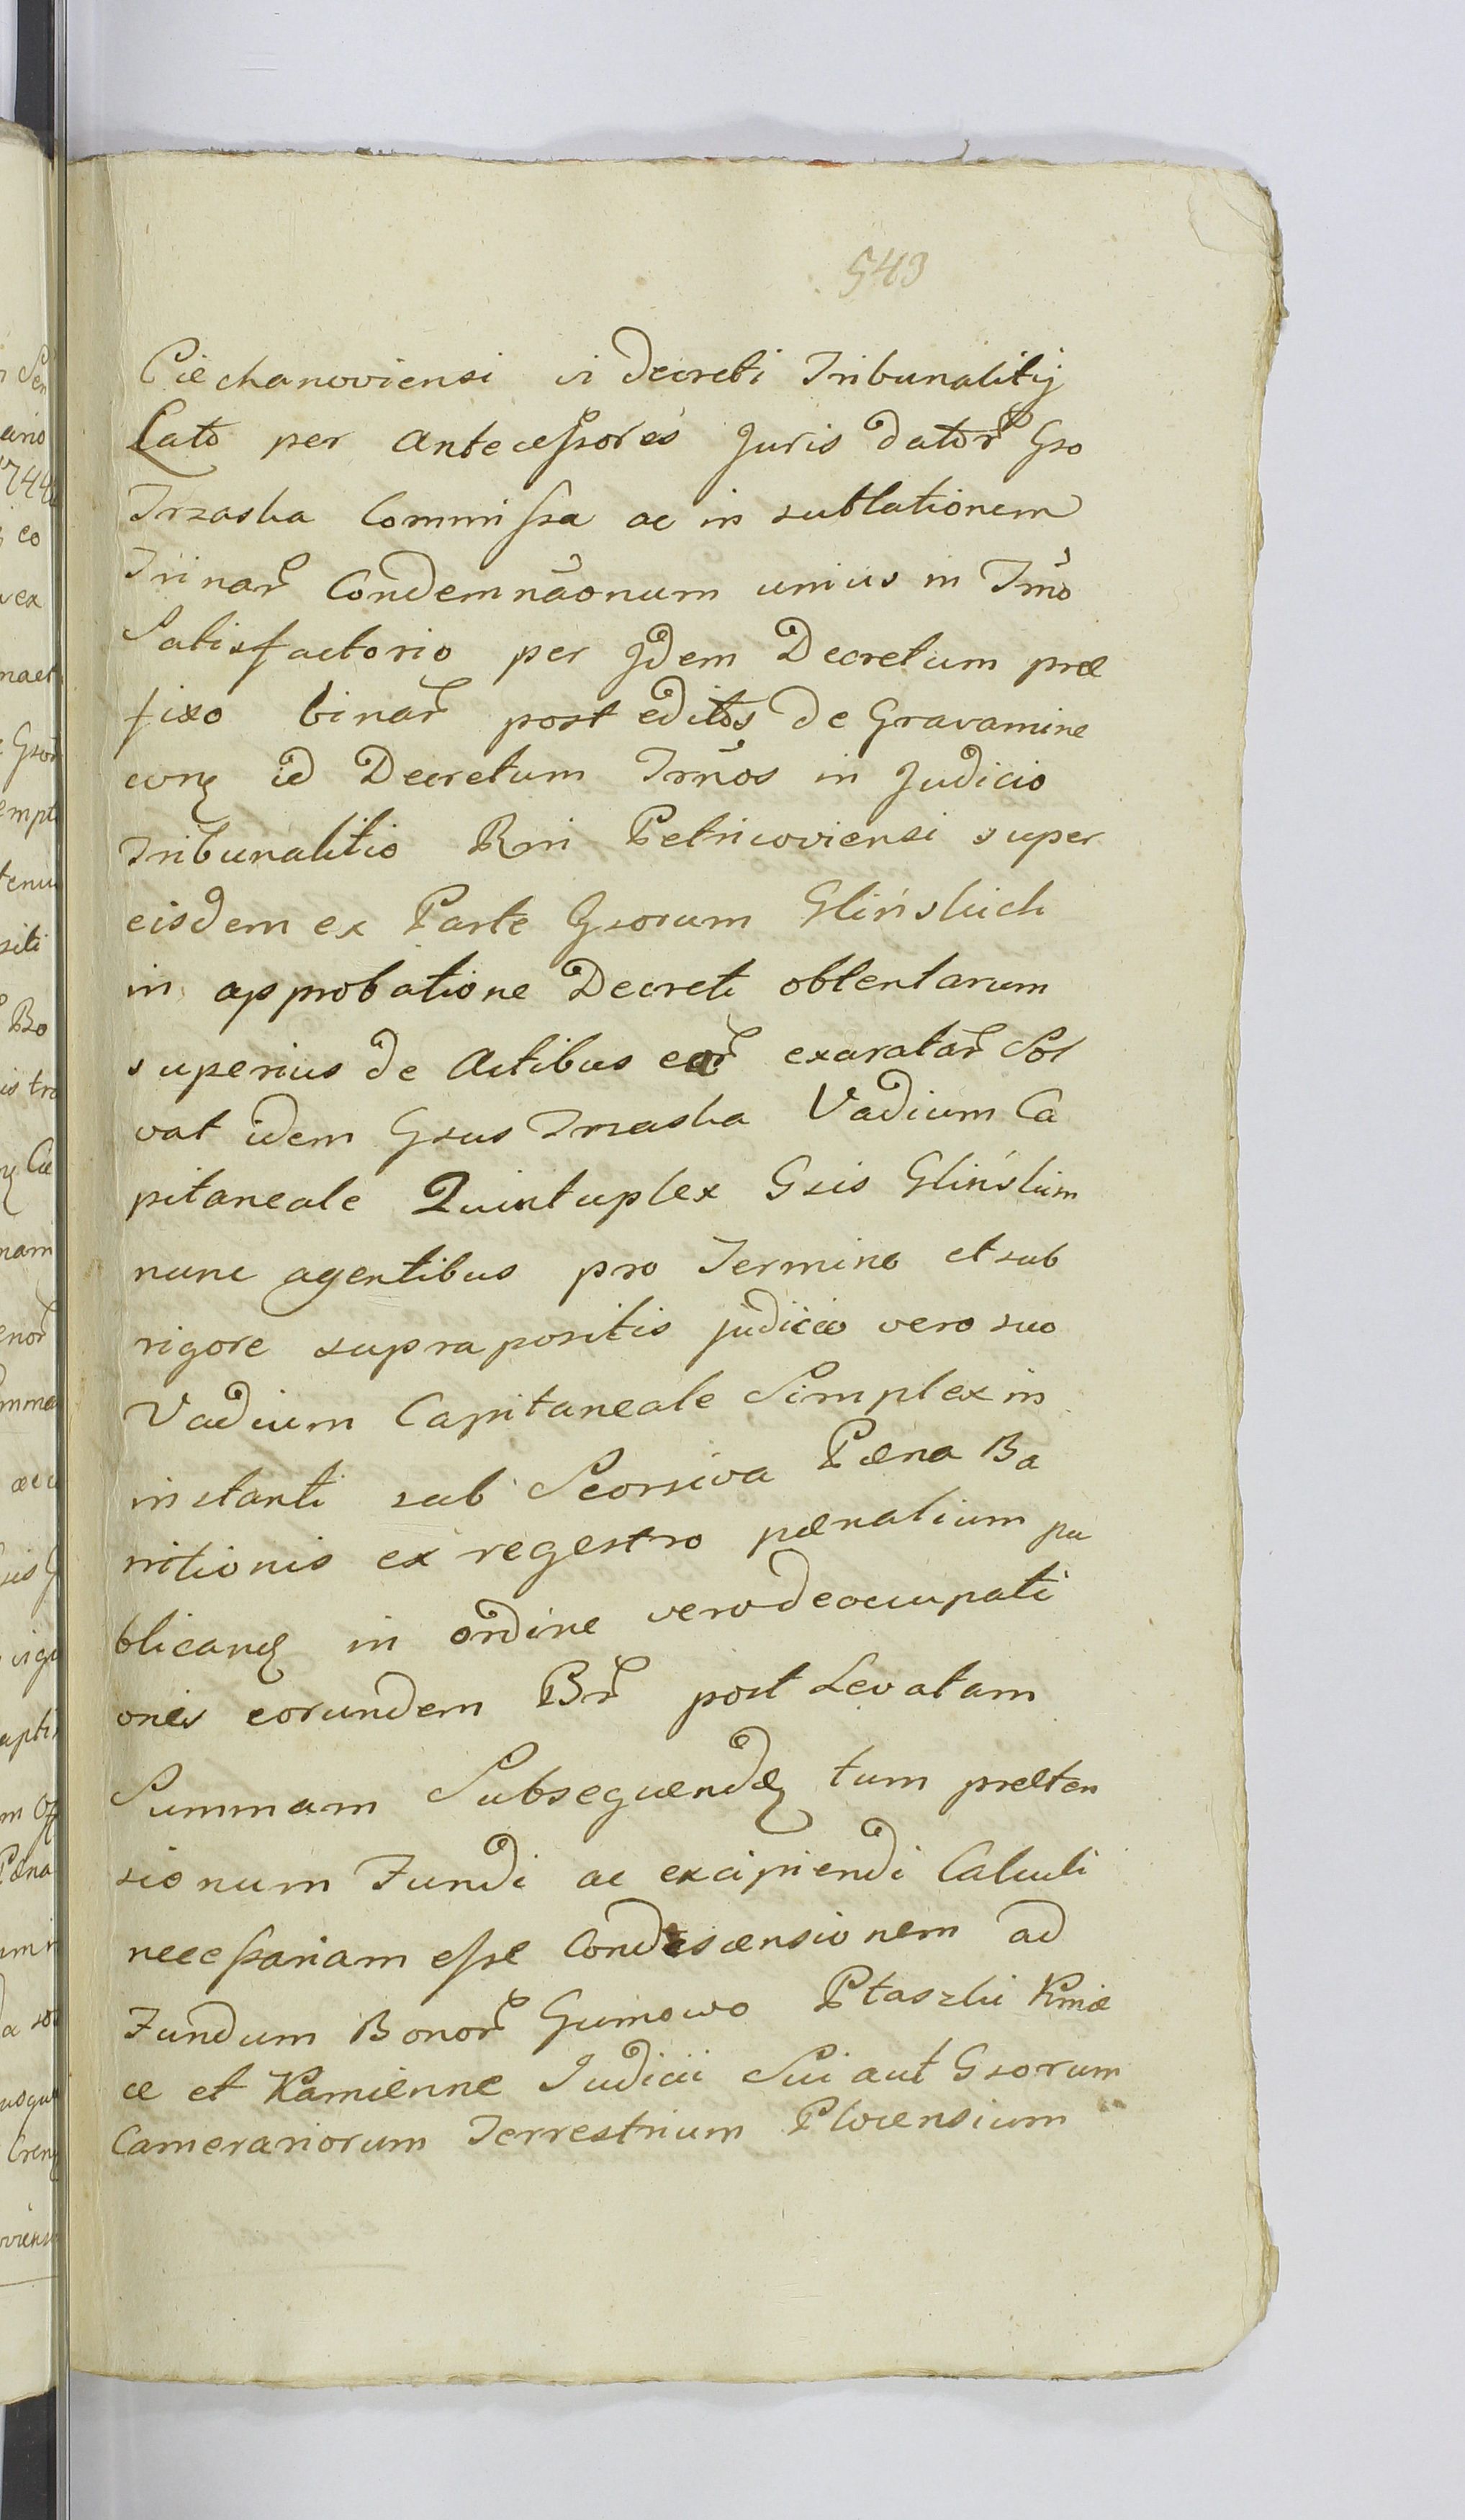 543
Ciechanoviensi vi decreti Tribunalitij
Lato per Antecessores Juris datoꝝ Gso
Trzaska Commissa ac in sublationem
Trinaꝝ Condemnãonum unius in Trño
Satisfactorio per Jdem Decretum præ
fixo binaꝝ post editos de Gravamine
conꝭ id Decretum Trños in Judicio
Tribunalitio Rni Petricoviensi super
eisdem ex Parte Gsorum Glińskich
in approbatione Decreti obtentarum
superius de Actibus eaꝝ exarataꝝ Sol
vat idem Gsus Trzaska Vadium Ca
pitaneale Quintuplex Gsis Glińskim
nunc agentibus pro Termino et sub
rigore suprapositis judicio vero suo
Vadium Capitaneale Simplex in
instanti sub Seorsiva Pæna Ba
nitionis ex regestro pænalium pu
blicanꝭ in ordine vero deoccupati
onis eorundem Bꝝ post Levatam
Summam Subsequendꝭ tum præten
sionum Fundi ac excipiendi Calculi
necessariam esse Condescensionem ad
Fundum Bonoꝝ Gumowo Ptaszki Kmie
ce et Kamienne Judicii Sui aut Gsorum
Camerariorum Terrestrium Plocensium